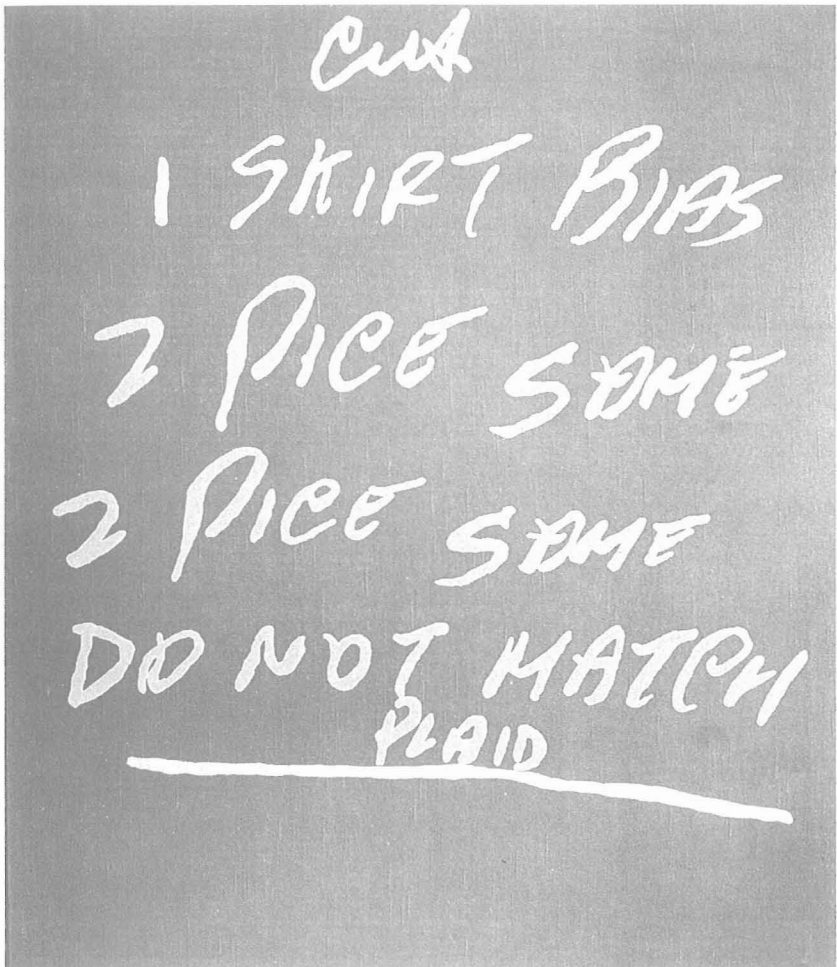 Cut
1 SKIRT BIAS
2 PICE SOME
2 PICE SOME
DO NOT MATCH
PLAID